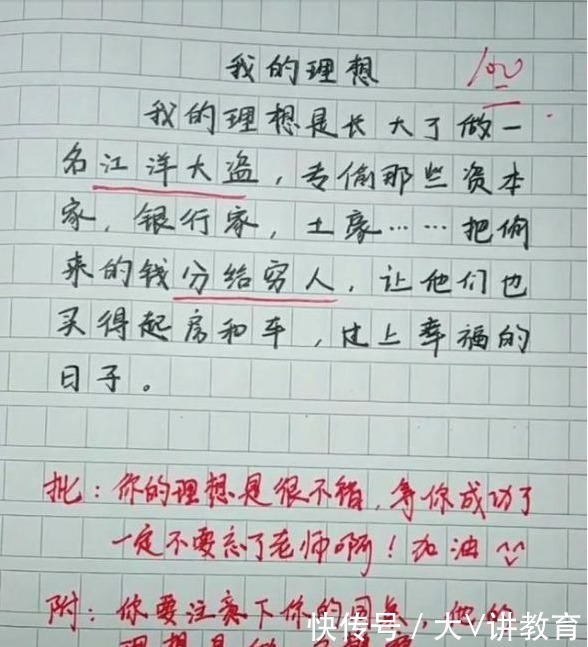 我的理想
100
我的理想是长大了做一
名江洋大盗，专偷那些资本
家，银行家，土豪……把偷
来的钱分给穷人，让他们也
买得起房和车，过上幸福的
日子。
批：你的理想是很不错，等你成功了
一定不要忘了老师啊！加油
附：你要注意下你的同桌，他的
理想是
快传号/大V讲教育